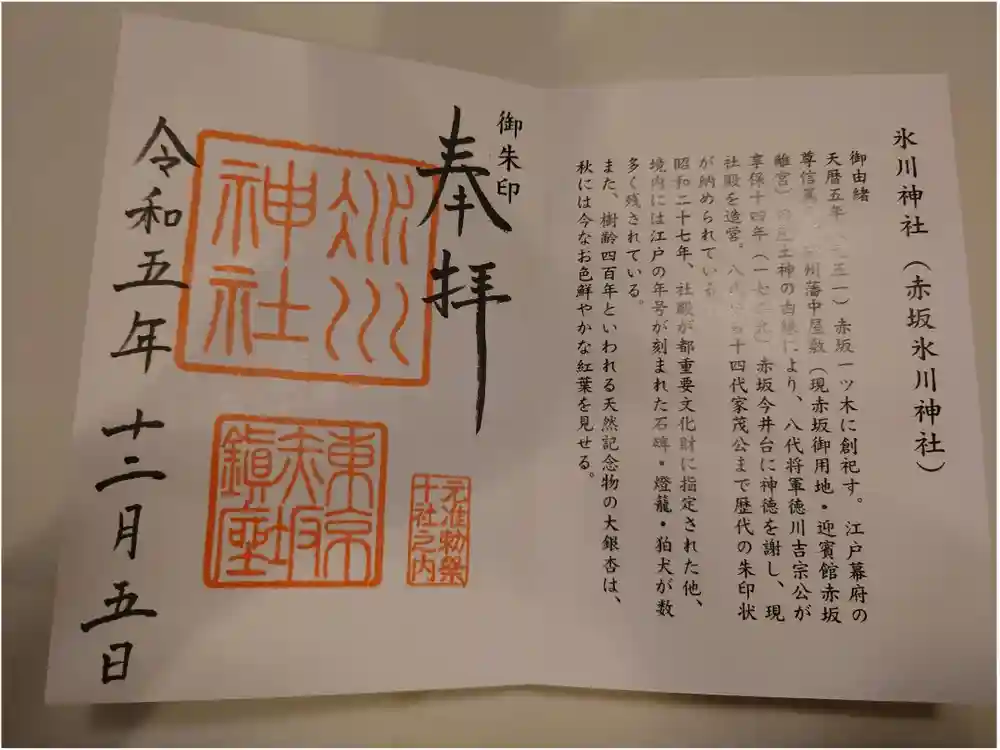 氷川神社（赤坂氷川神社）
御由緒
天暦五年（九五一）赤坂一ツ木に創祀す。江戸幕府の
尊信篤 州藩中屋敷（現赤坂御用地・迎賓館赤坂
離宮）の産土神の由縁により、八代将軍徳川吉宗公が
享保十四年（一七二九）赤坂今井台に神徳を謝し、現
社殿を造営。八代 十四代家茂公まで歴代の朱印状
が納められている。
昭和二十七年、社殿が都重要文化財に指定された他、
境内には江戸の年号が刻まれた石碑・燈籠・狛犬が数
多く残されている。
また、樹齢四百年といわれる天然記念物の大銀杏は、
秋には今なお色鮮やかな紅葉を見せる。
御朱印
奉拝
元准勅祭
十社之内
氷川
神社
東京
赤坂
鎮座
令和五年 十二月五日